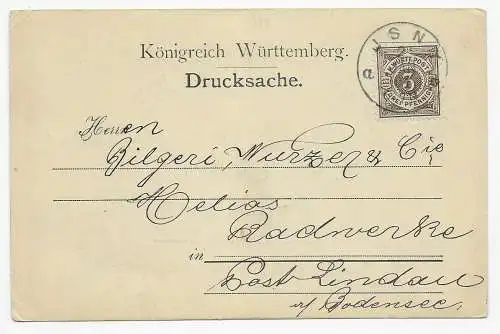 Königreich Württemberg.
Drucksache.
ISNY
a
K. WÜRTT. POST
3
DREI PFENNIG
Herren
Bilgeri, Wurzer & Cie
Helios
Radwerke
in Post Lindau
a/ Bodensee.